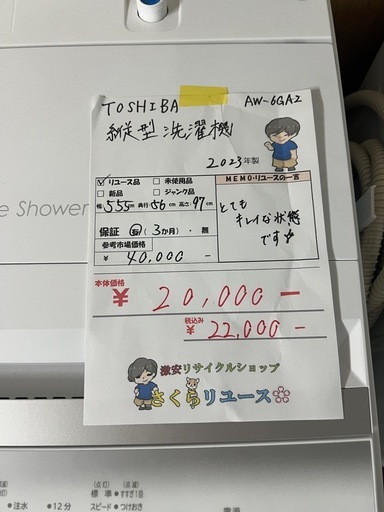 TOSHIBA AW-6GA2
縦型洗濯機
2023年製
リユース品 未使用品
新品 ジャンク品
幅:555cm 奥行:56cm 高さ:97cm
保証 (有) (3か月)・無
参考市場価格
¥ 40,000 -
MEMO・リユースの一言
とても
キレイな状態
です
本体価格
¥ 20,000-
税込み
¥ 22,000-
激安リサイクルショップ
さくらリユース
e Shower
(点灯) (点滅)
注水 12分 標準 すすぎ1回
スピード つけおき